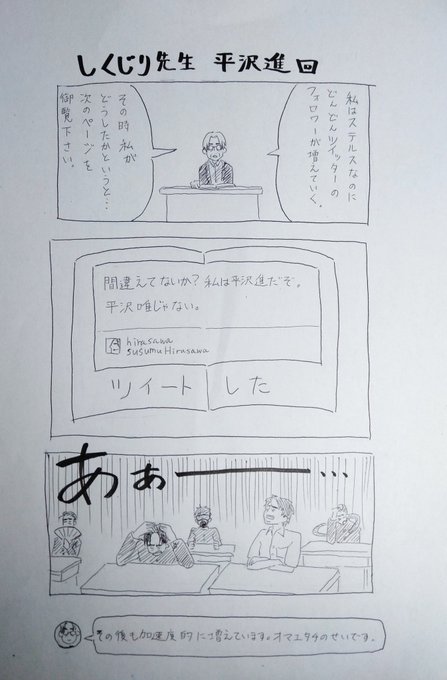 しくじり先生 平沢進回
私はステルスなのに
どんどんツイッターの
フォロワーが増えていく。
その時私が
どうしたかというと…
次のページを
御覧下さい。
間違えてないか?私は平沢進だぞ。
平沢唯じゃない。
hirasawa
susumuHirasawa
ツイートした
あぁー…
その後も加速度的に増えています。オマエタチのせいです。